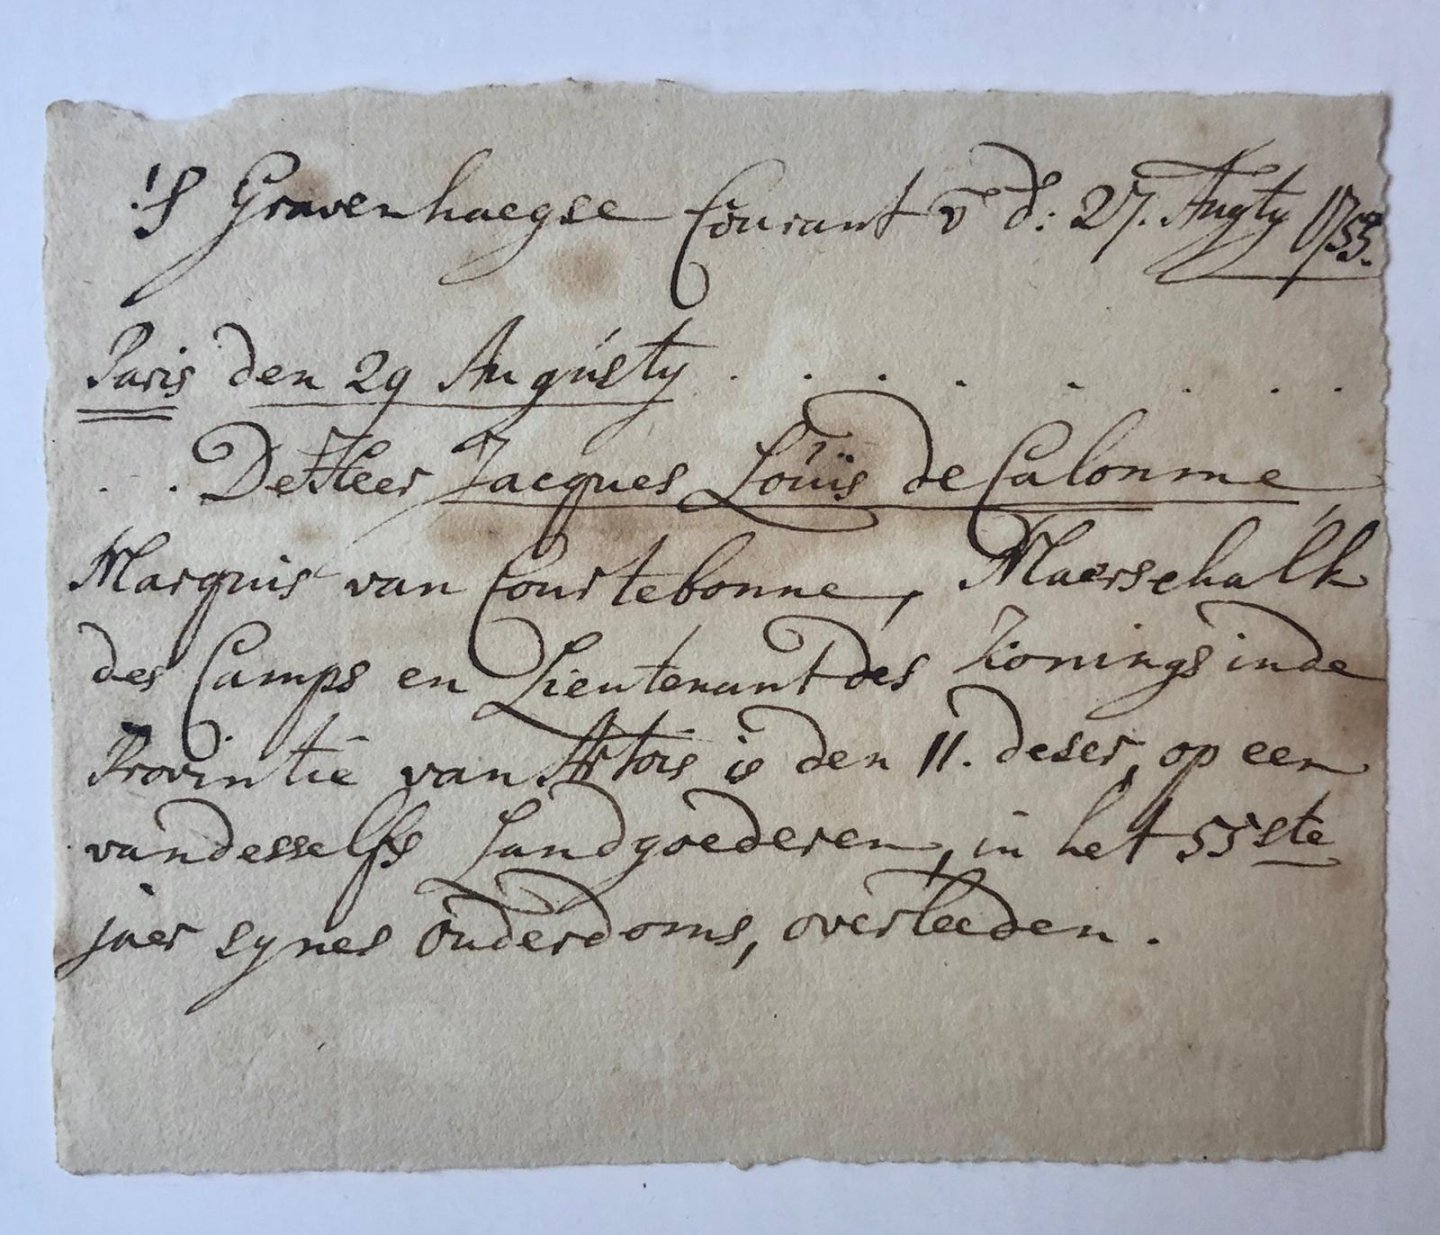 's Gravenhaegse Courant v d: 27. Augty 1753.
Paris den 29 Augústy . . . . . . . .
. . De Heer Jacques Loúïs de Calonne,
Marquis van Courtebonne, Maerschalk
des Camps en Lieutenant des Konings in de
Provintie van Artois is den 11. deser, op een
van desselfs Landgoederen, in het 55ste
jaer synes Ouderdoms, overleeden.